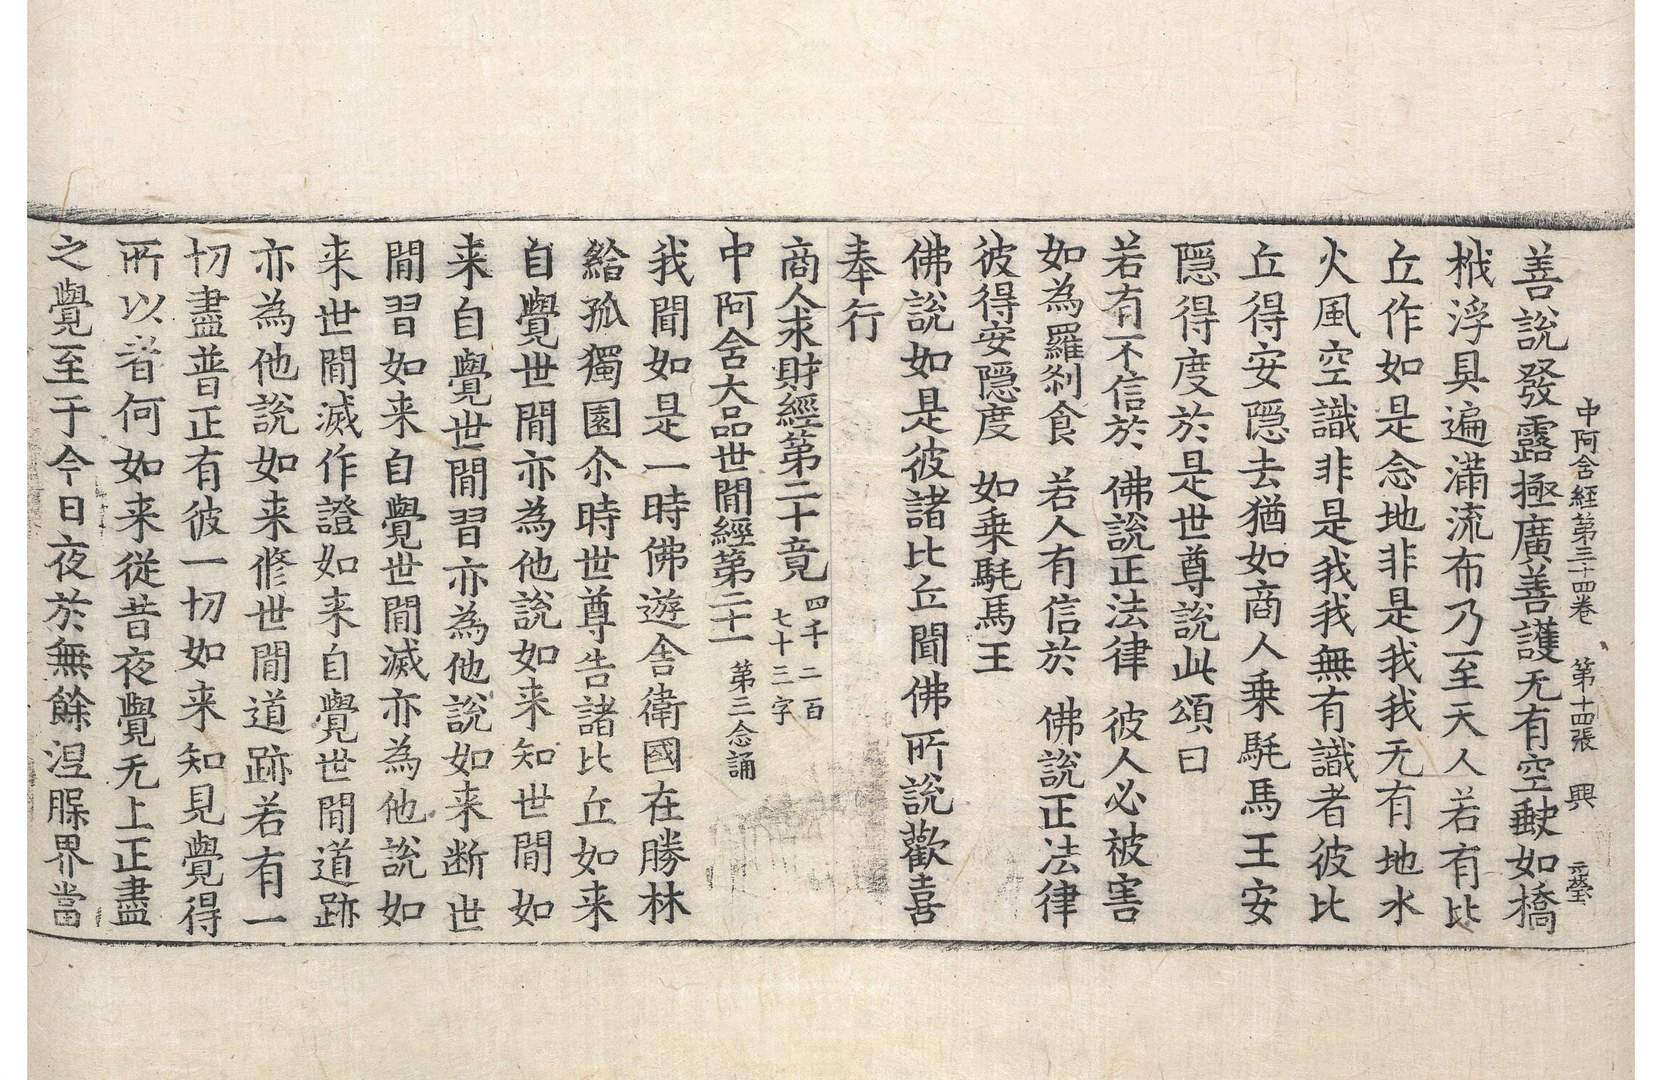 中阿含經第三十四卷 第十四張 興
善說發露極廣善護无有空𡙇如橋
栰浮具遍滿流布乃至天人若有比
丘作如是念地非是我我无有地水
火風空識非是我我無有識者彼比
丘得安隱去猶如商人乗馲馬王安
隱得度於是世尊說此頌曰
若有不信於 佛說正法律 彼人必被害
如為羅刹食 若人有信於 佛說正法律
彼得安隱度 如乗馲馬王
佛說如是彼諸比丘聞佛所說歡喜
奉行
商人求財經第二十竟 四千二百七十三字
中阿含大品世閒經第二十一 第三念誦
我聞如是一時佛遊舍衛國在勝林
給孤獨園尒時世尊告諸比丘如来
自覺世閒亦為他說如来知世閒如
来自覺世閒習亦為他說如来断世
閒習如来自覺世閒滅亦為他說如
来世閒滅作證如来自覺世閒道跡
亦為他說如来修世閒道跡若有一
切盡普正有彼一切如来知見覺得
所以者何如来從昔夜覺无上正盡
之覺至于今日夜於無餘涅槃界當